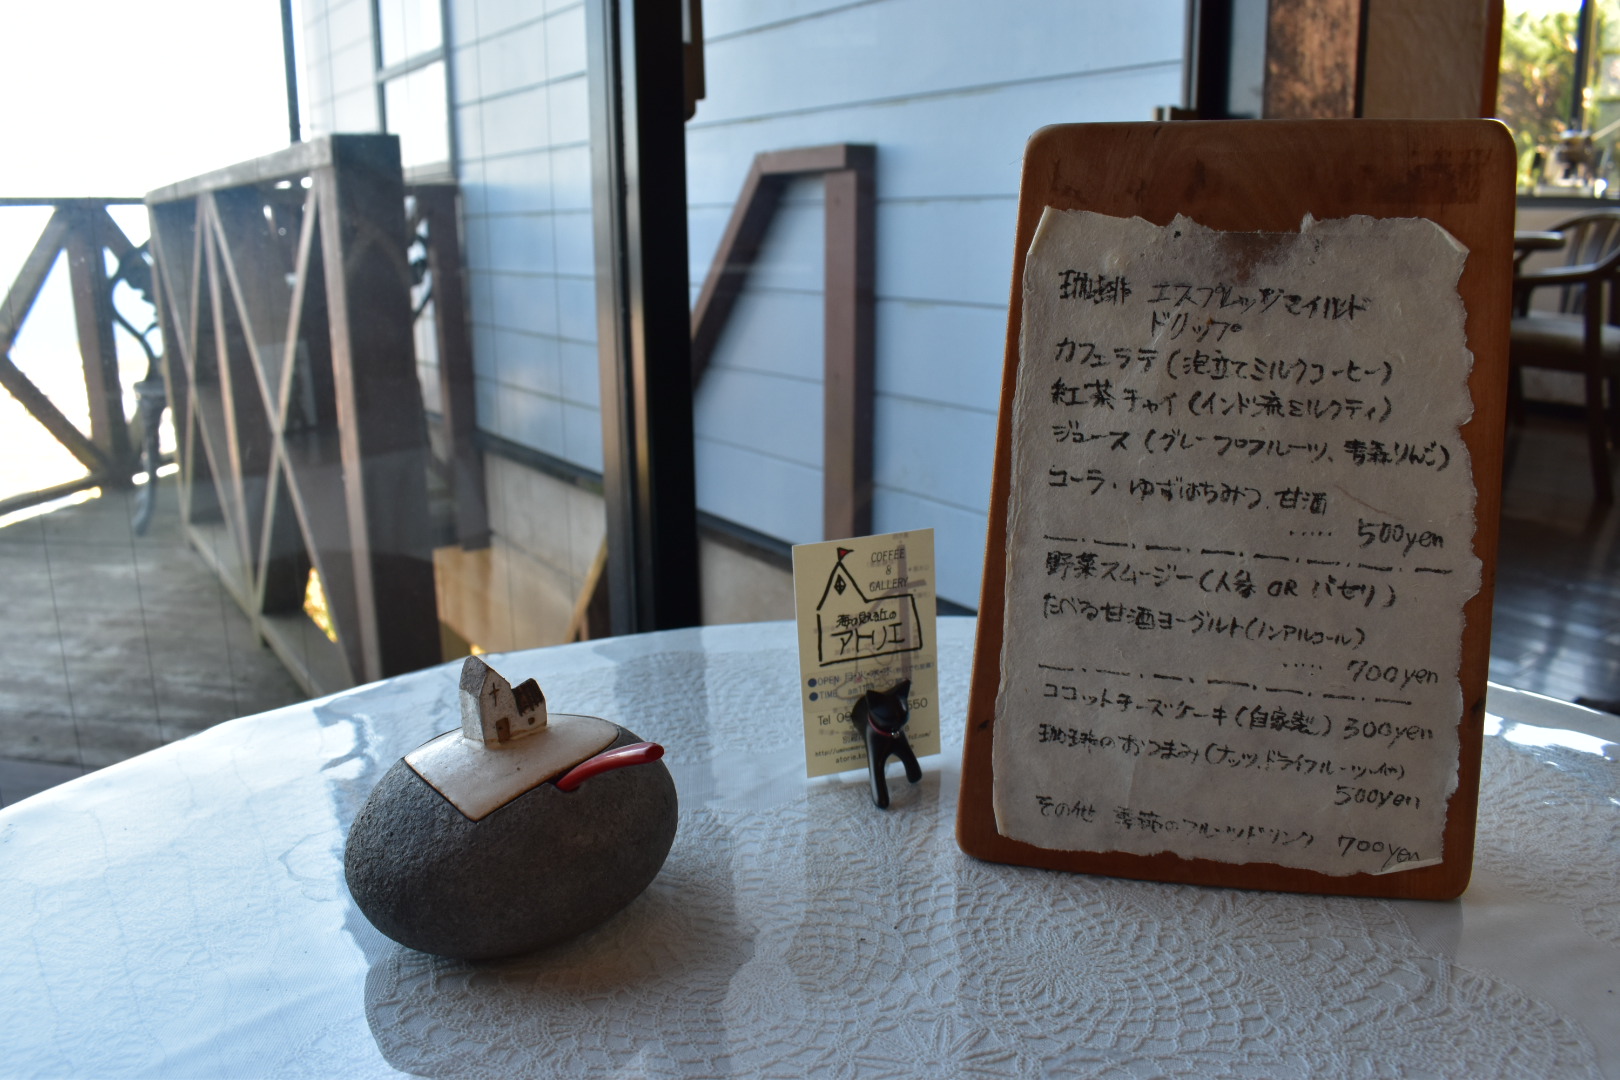 珈琲 エスプレッソマイルド
ドリップ
カフェラテ(泡立てミルクコーヒー)
紅茶 チャイ(インド流ミルクティ)
ジュース(グレープフルーツ、青森りんご)
コーラ・ゆずはちみつ.甘酒
..... 500yen
野菜スムージー(人参 OR パセリ)
たべる甘酒ヨーグルト(ノンアルコール)
..... 700yen
ココットチーズケーキ(自家製) 300yen
珈琲のおつまみ(ナッツ、ドライフルーツ
500yen
その他 季節のフルーツドリンク 700yen
COFFEE
&
GALLERY
アトリエ
OPEN
TIME
Tel